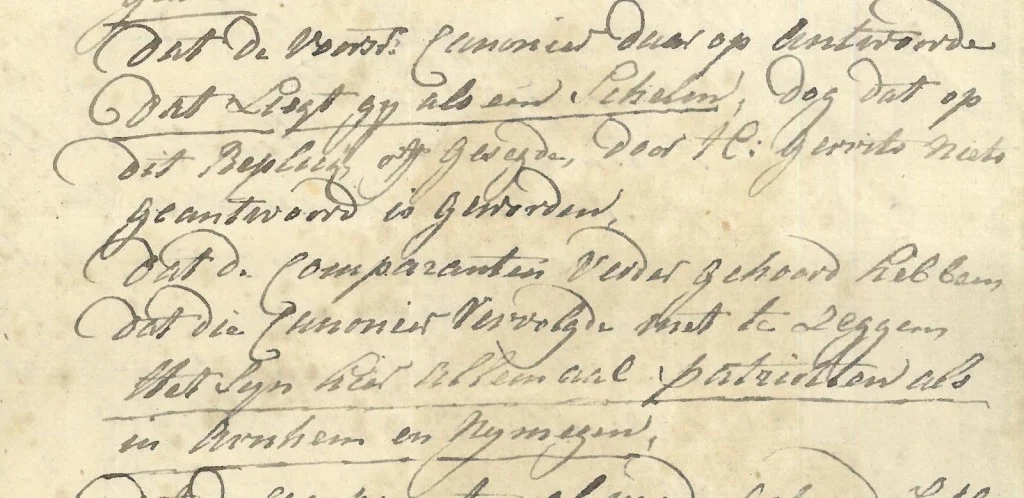 dat de Voorsz: Canonier daar op antwoorde
dat Liegt gy als een Schelm, dog dat op
dit Replicq, off gesegde, door H: Gerrits niets
geantwoord is geworden,
dat de Comparanten Verder gehoord hebben
dat die Canonier Vervolgde met te Zeggen,
Het Syn hier allemaal patriotten als
in Arnhem en Nymegen,